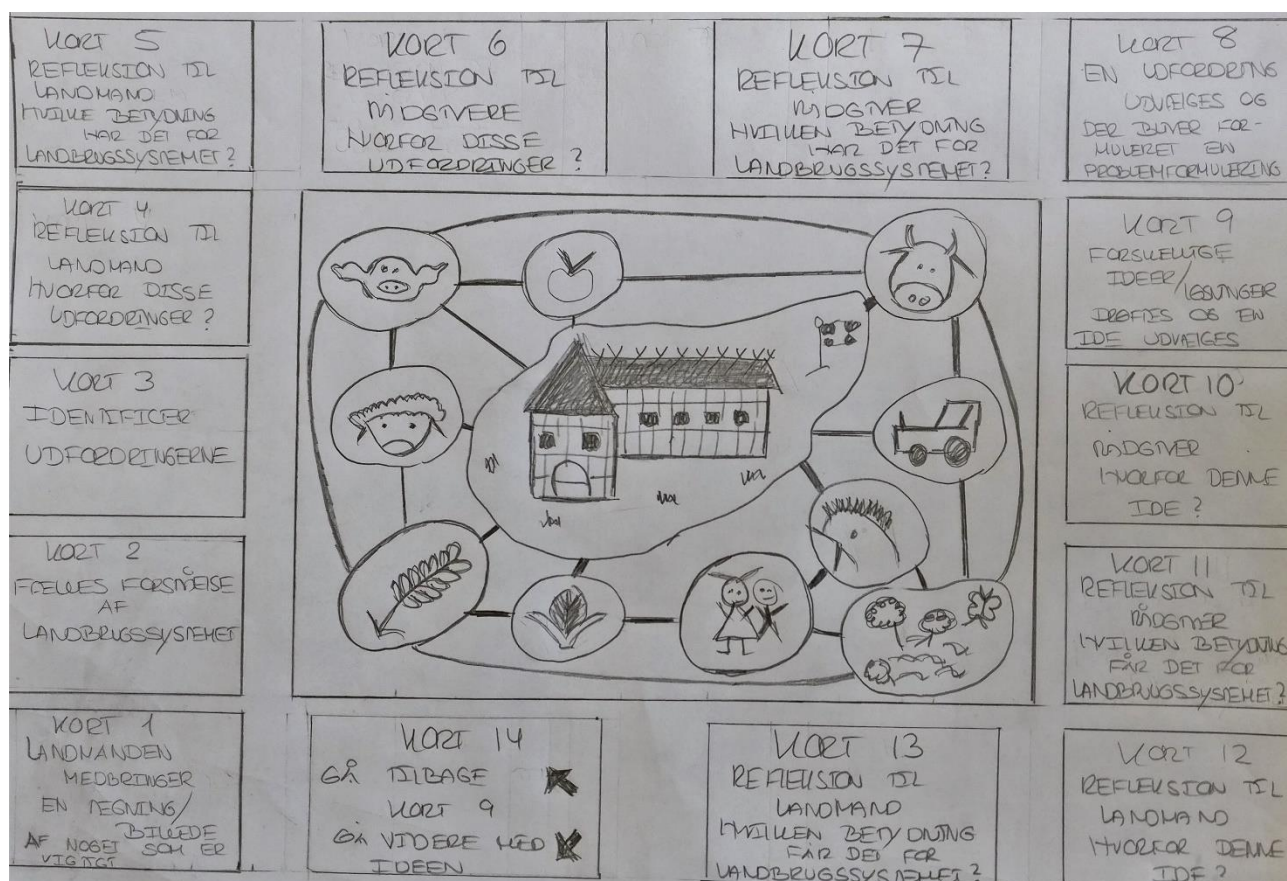 KORT 5
REFLEKSION TIL
LANDMAND
HVILKE BETYDNING
HAR DET FOR
LANDBRUGSSYSTEMET?
KORT 6
REFLEKSION TIL
RÅDGIVERE
HVORFOR DISSE
UDFORDRINGER?
KORT 7
REFLEKSION TIL
RÅDGIVER
HVILKEN BETYDNING
HAR DET FOR
LANDBRUGSSYSTEMET?
KORT 8
EN UDFORDRING
UDVÆLGES OG
DER BLIVER FOR-
MULERET EN
PROBLEMFORMULERING
KORT 4
REFLEKSION TIL
LANDMAND
HVORFOR DISSE
UDFORDRINGER?
KORT 9
FORSKELLIGE
IDEER/
LØSNINGER
DRØFTES OG EN
IDE UDVÆLGES
KORT 3
IDENTIFICER
UDFORDRINGERNE
KORT 10
REFLEKSION TIL
RÅDGIVER
HVORFOR DENNE
IDE?
KORT 2
FÆLLES FORSTÅELSE
AF
LANDBRUGSSYSTEMET
KORT 11
REFLEKSION TIL
RÅDGIVER
HVILKEN BETYDNING
FÅR DET FOR
LANDBRUGSSYSTEMET?
KORT 1
LANDMANDEN
MEDBRINGER
EN TEGNING/
BILLEDE
AF NOGET SOM ER
VIGTIGT
KORT 14
GÅ TILBAGE
KORT 9
GÅ VIDERE MED
IDEEN
KORT 13
REFLEKSION TIL
LANDMAND
HVILKEN BETYDNING
FÅR DET FOR
LANDBRUGSSYSTEMET?
KORT 12
REFLEKSION TIL
LANDMAND
HVORFOR DENNE
IDE?